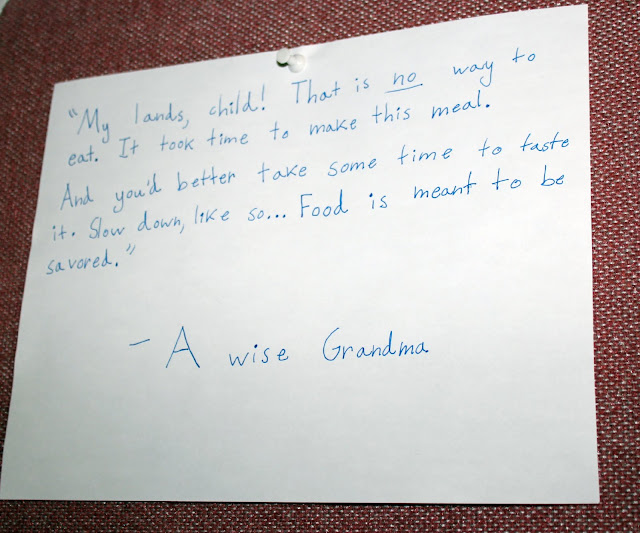 "My lands, child! That is no way to
eat. It took time to make this meal.
And you'd better take some time to taste
it. Slow down, like so... Food is meant to be
savored."
- A wise Grandma